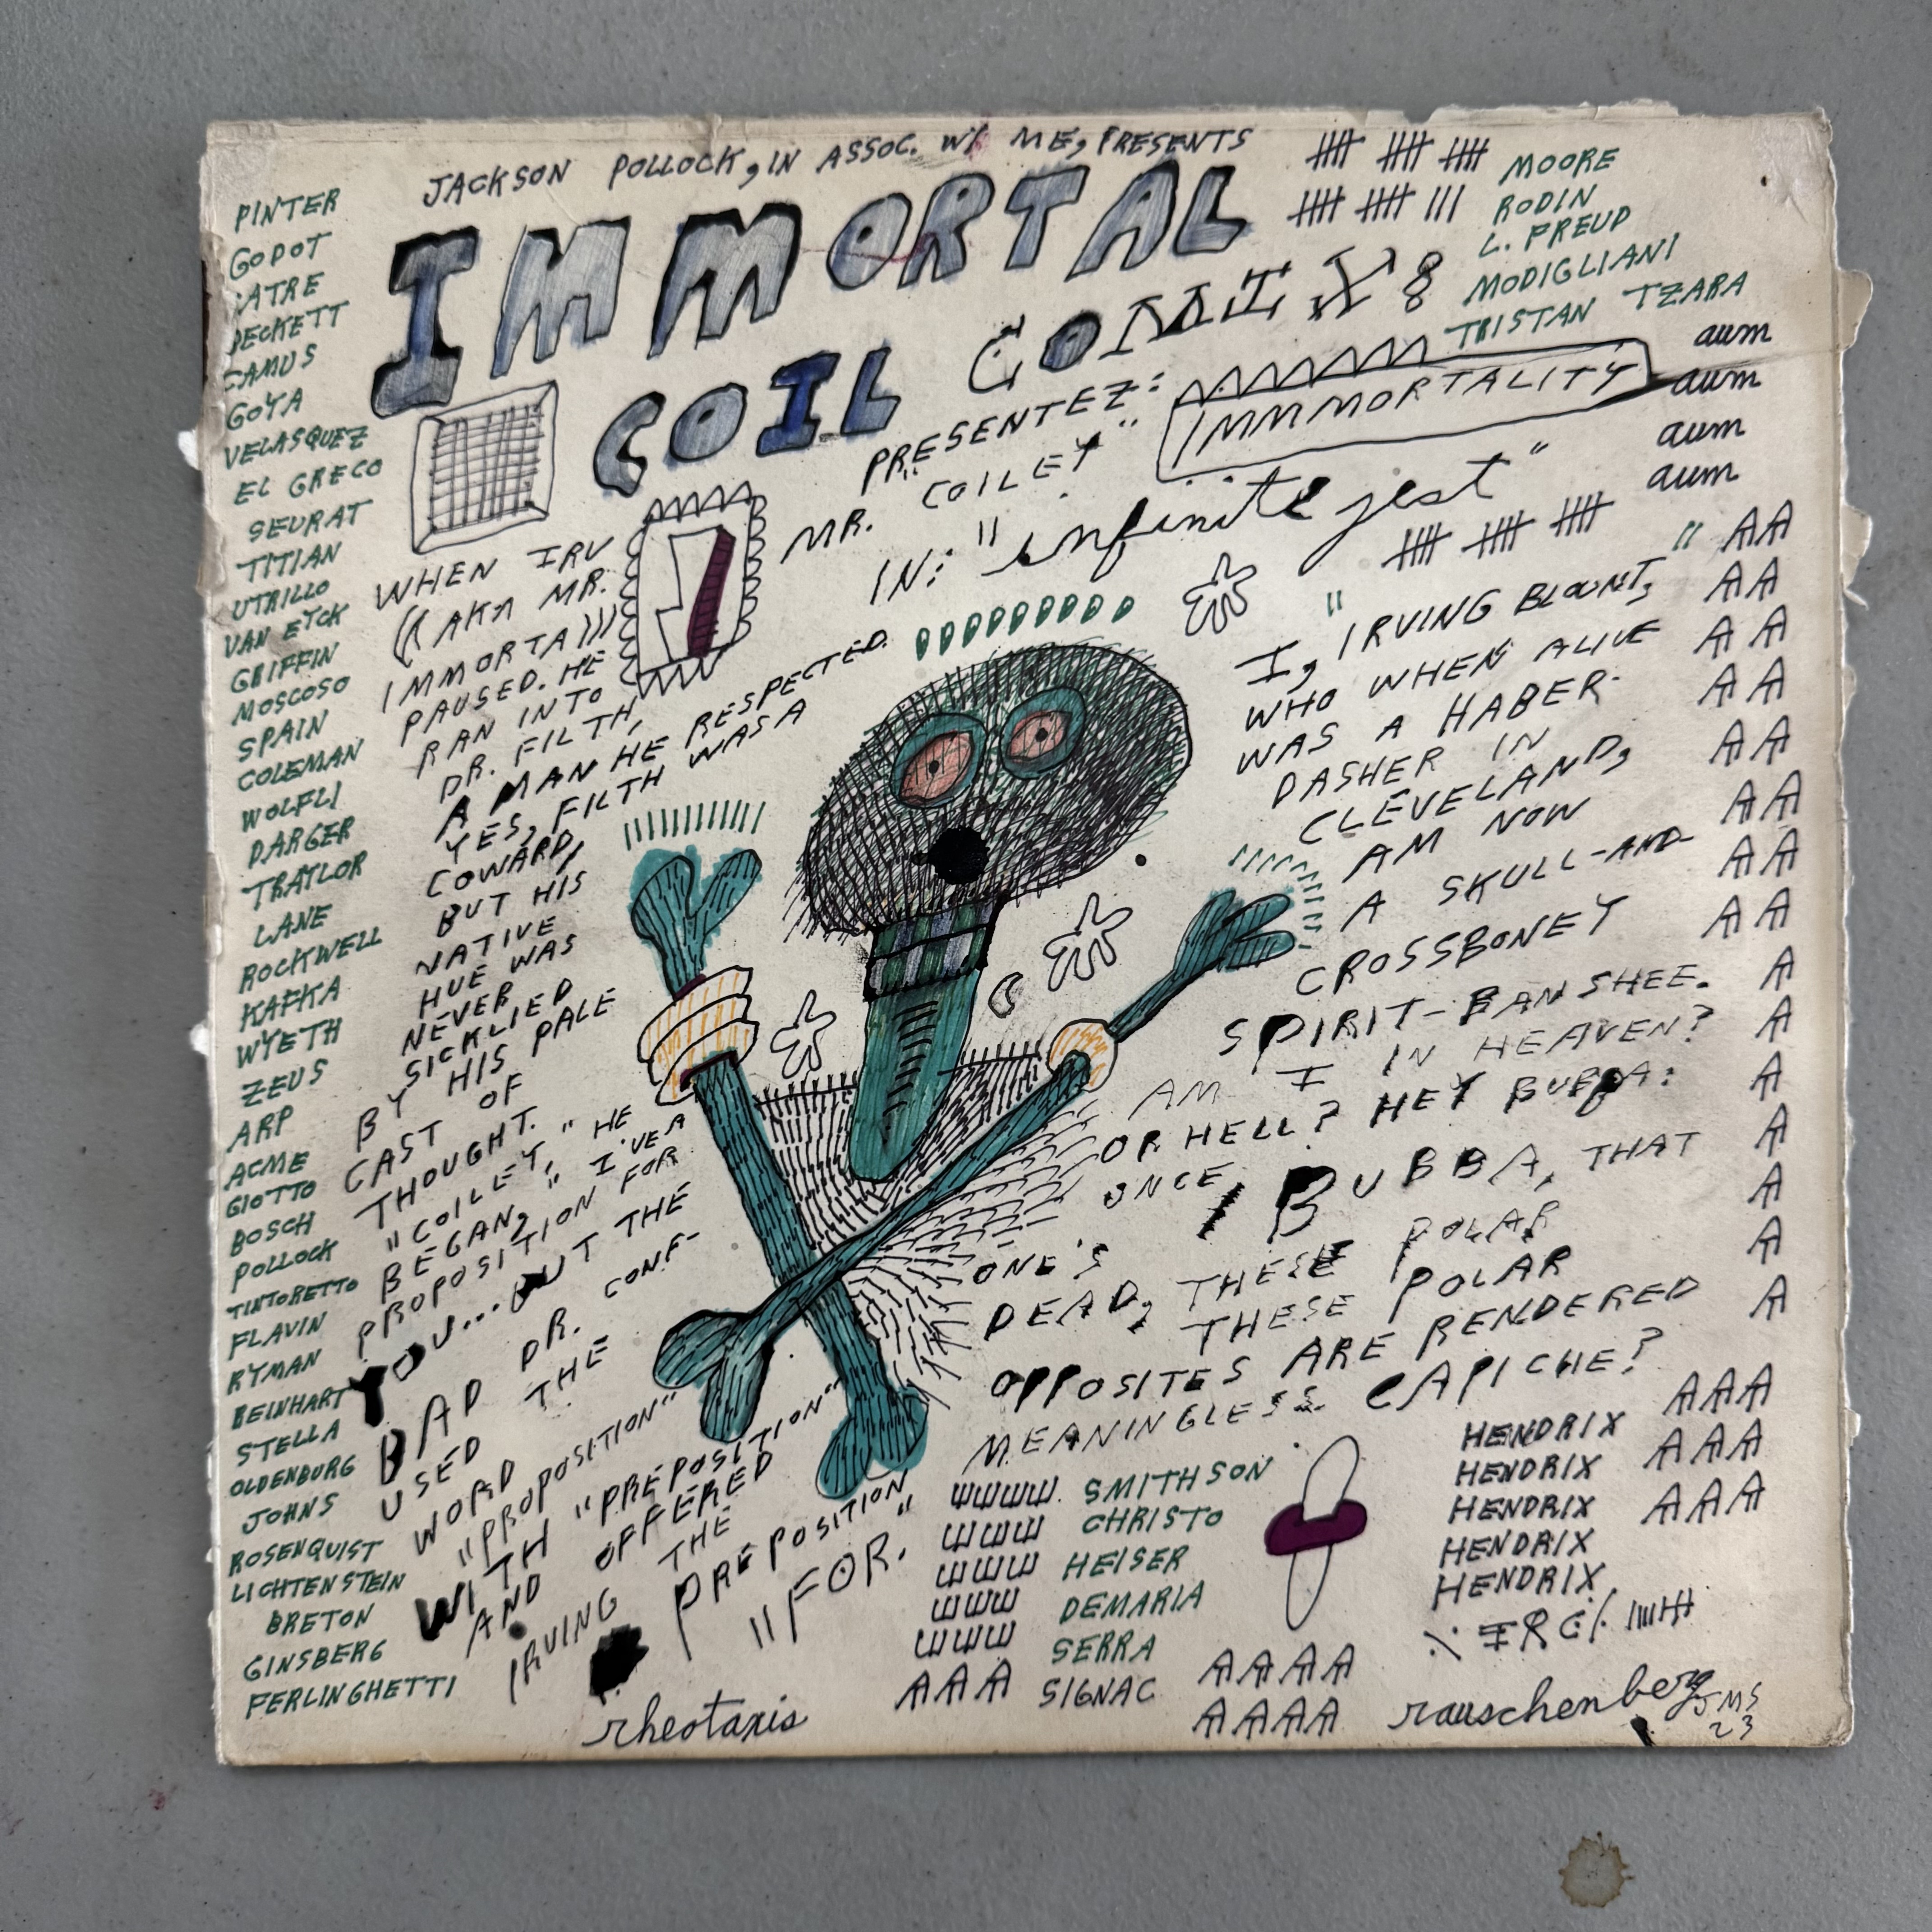 JACKSON POLLOCK, IN ASSOC. W/ ME, PRESENTS
IMMORTAL
COIL COMIX:
PRESENTEZ:
MR. "COILEY"
IMMMORTALITY
IN: "infinite jest"
PINTER
GODOT
BECKETT
CAMUS
GOYA
VELASQUEZ
EL GRECO
SEURAT
TITIAN
UTRILLO
VAN EYCK
GRIFFIN
MOSCOSO
SPAIN
COLEMAN
WOLFLI
DARGER
TRAYLOR
LANE
ROCKWELL
KAFKA
WYETH
ZEUS
ARP
ACME
GIOTTO
BOSCH
POLLOCK
TINTORETTO
FLAVIN
RYMAN
REINHART
STELLA
OLDENBURG
JOHNS
ROSENQUIST
LICHTENSTEIN
BRETON
GINSBERG
FERLINGHETTI
WHEN IRV
((AKA MR.
IMMORTA)))
PAUSED. HE
RAN INTO
DR. FILTH,
A MAN HE RESPECTED.
YES, FILTH WAS A
COWARD,
BUT HIS
NATIVE
HUE WAS
NEVER
SICKLIED
BY HIS PALE
CAST OF
THOUGHT.
"COILEY," HE
BEGAN, "I'VE A
PROPOSITION FOR
YOU... BUT THE
BAD DR. CONF-
USED THE
WORD
"PROPOSITION"
WITH "PREPOSITION"
AND OFFERED
IRVING THE
PREPOSITION
"FOR."
rheotaxis
MOORE
RODIN
L. FREUD
MODIGLIANI
TRISTAN TZARA
aum
aum
aum
aum
" "
I, IRVING BLOUNT,
WHO WHEN ALIVE
WAS A HABER-
DASHER IN
CLEVELAND,
AM NOW
A SKULL-AND-
CROSSBONEY
SPIRIT-BANSHEE.
AM I IN HEAVEN?
OR HELL? HEY BUBBA:
ONCE BUBBA, THAT
ONE'S
DEAD, THESE POLAR
THESE POLAR
OPPOSITES ARE RENDERED
MEANINGLESS. CAPICHE?
AA
AA
AA
AA
AA
AA
AA
AA
A
A
A
A
A
A
A
AAA
AAA
AAA
HENDRIX
HENDRIX
HENDRIX
HENDRIX
HENDRIX
SMITHSON
CHRISTO
HEISER
DEMARIA
SERRA
AAA SIGNAC AAAA
AAAA
rauschenberg
JMS
23